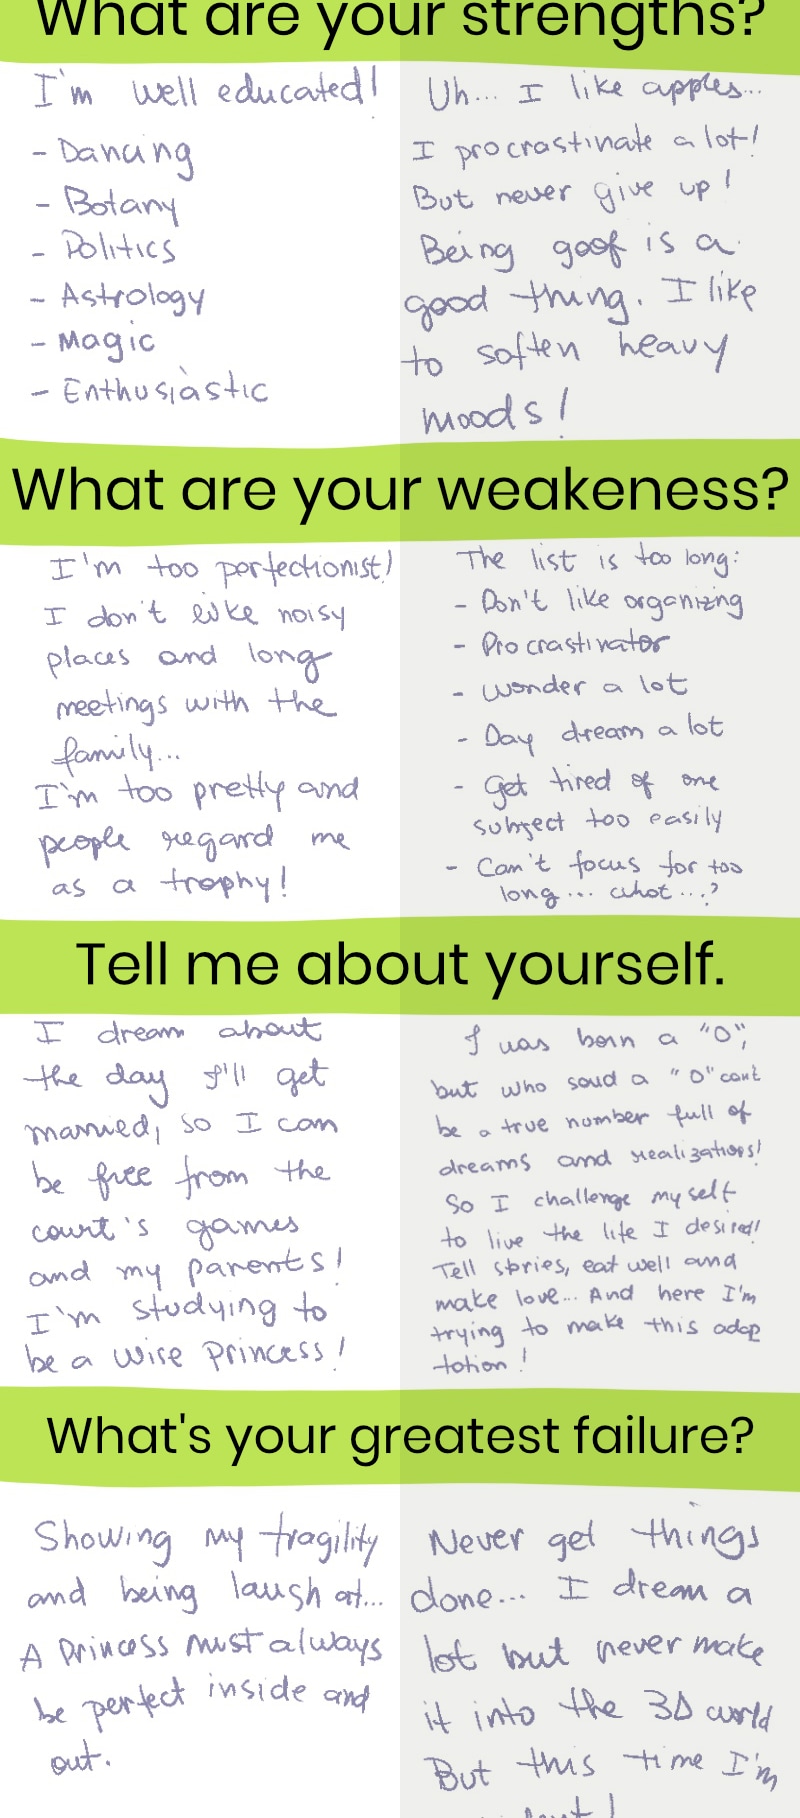 What are your strengths?
I'm well educated!
- Dancing
- Botany
- Politics
- Astrology
- Magic
- Enthusiastic
Uh... I like apples...
I procrastinate a lot!
But never give up!
Being goof is a
good thing. I like
to soften heavy
moods!
What are your weakeness?
I'm too perfectionist!
I don't like noisy
places and long
meetings with the
family...
I'm too pretty and
people regard me
as a trophy!
The list is too long:
- Don't like organizing
- Procrastinator
- wonder a lot
- Day dream a lot
- Get tired of one
subject too easily
- Can't focus for too
long... what...?
Tell me about yourself.
I dream about
the day I'll get
married, so I can
be free from the
court's games
and my parents!
I'm studying to
be a wise princess!
I was born a "0",
but who said a "0" cant
be a true number full of
dreams and realizations!
So I challenge myself
to live the life I desired!
Tell stories, eat well and
make love... And here I'm
trying to make this adap
tation!
What's your greatest failure?
Showing my fragility
and being laugh at...
A Princess must always
be perfect inside and
out.
Never get things
done... I dream a
lot but never make
it into the 3D world
But this time I'm